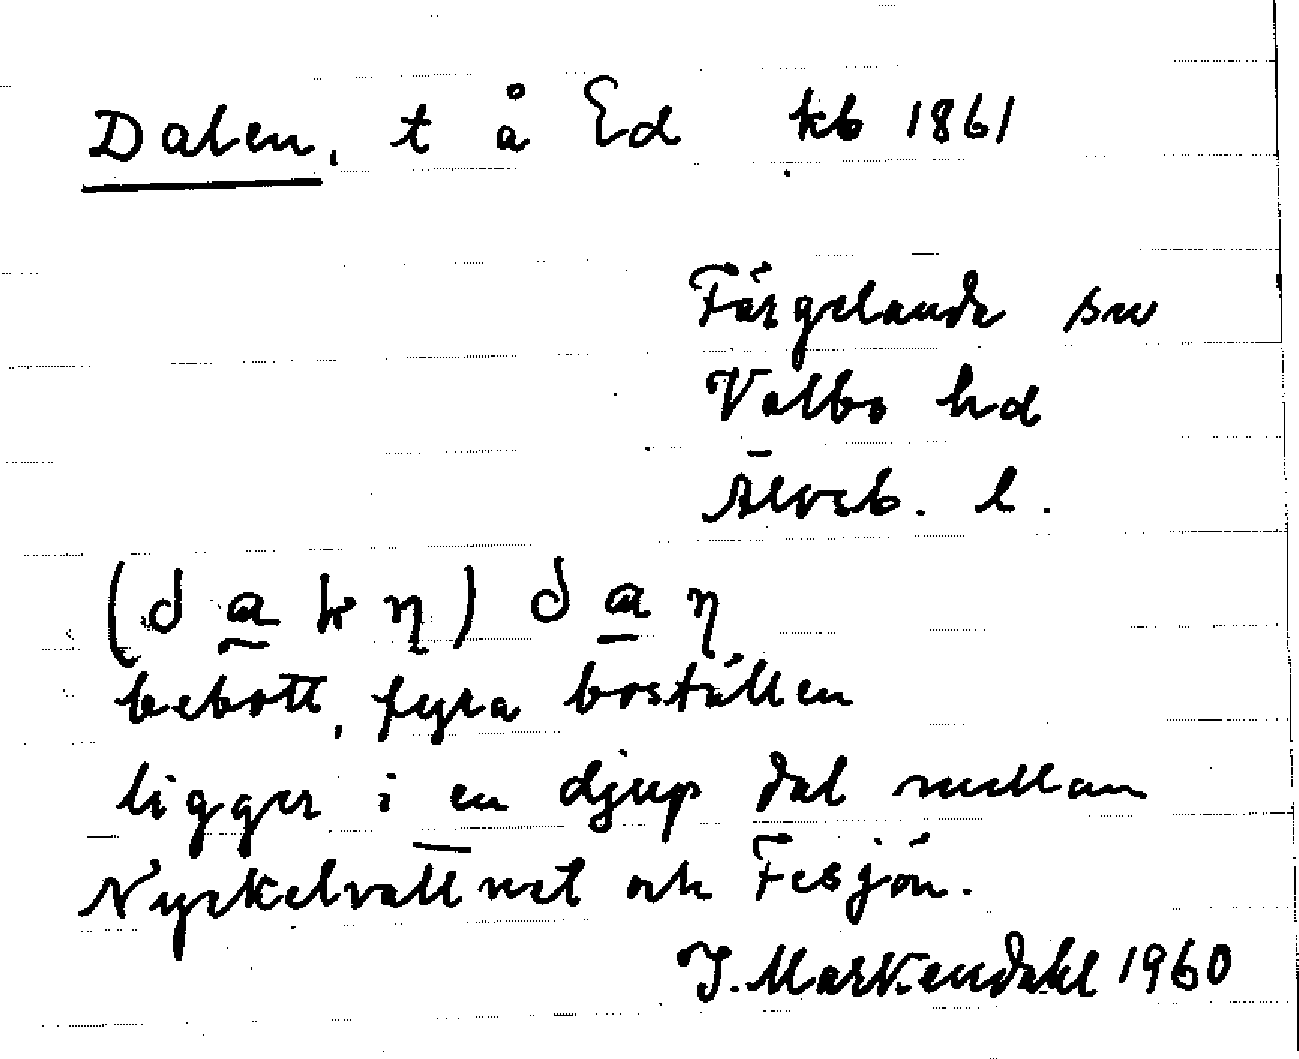 Dalen, t å Ed kb 1861
Färgelanda sn
Valbo hd
Älvsb. l.
(d a k η) d a η
bebott, fyra boställen
ligger i en djup dal mellan
Nyckelvattnet och Fesjön.
J. Markendahl 1960